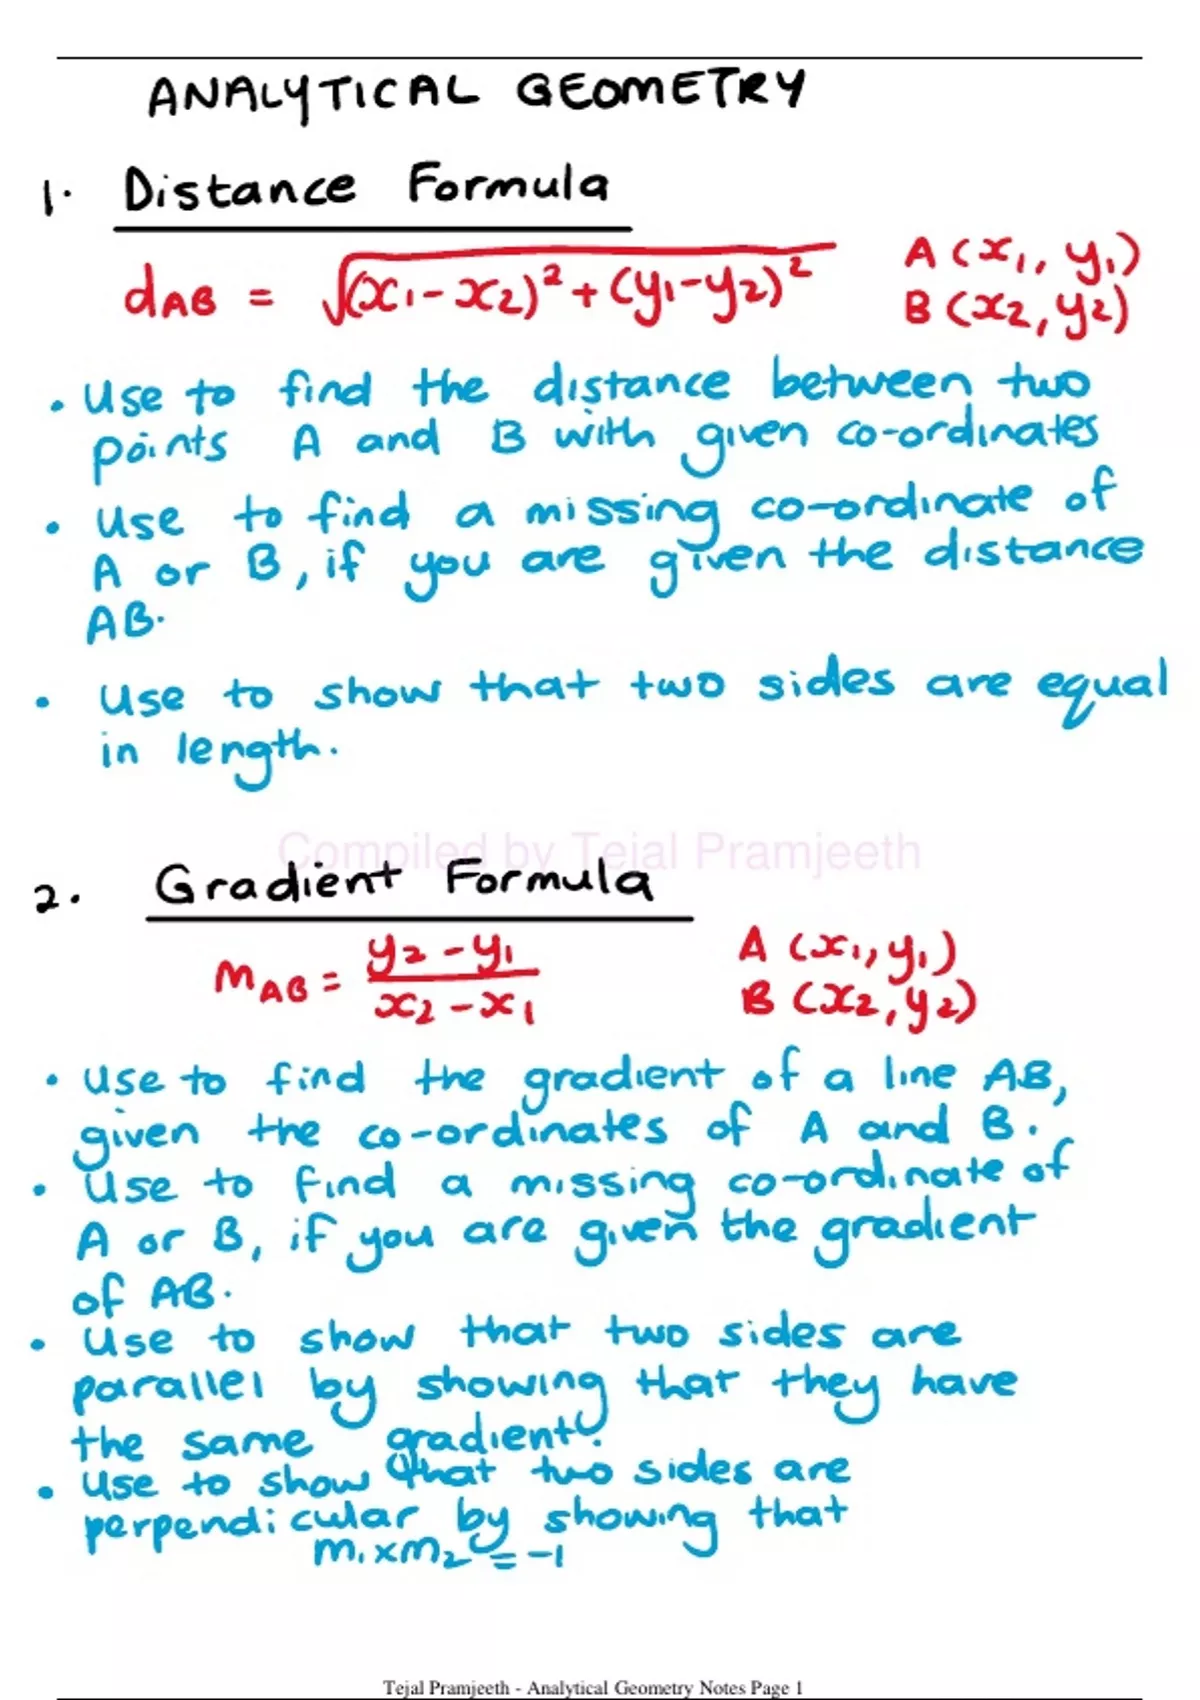 ANALYTICAL GEOMETRY
1. Distance Formula
dAB = √(x1-x2)²+(y1-y2)² A(x1, y1)
B(x2, y2)
• Use to find the distance between two
points A and B with given co-ordinates
• Use to find a missing co-ordinate of
A or B, if you are given the distance
AB.
• Use to show that two sides are equal
in length.
Compiled by Tejal Pramjeeth
2. Gradient Formula
mAB = y2-y1 A (x1, y1)
x2-x1 B (x2, y2)
• Use to find the gradient of a line AB,
given the co-ordinates of A and B.
• Use to find a missing co-ordinate of
A or B, if you are given the gradient
of AB.
• Use to show that two sides are
parallel by showing that they have
the same gradient.
• Use to show that two sides are
perpendicular by showing that
m1×m2 = -1
Tejal Pramjeeth - Analytical Geometry Notes Page 1